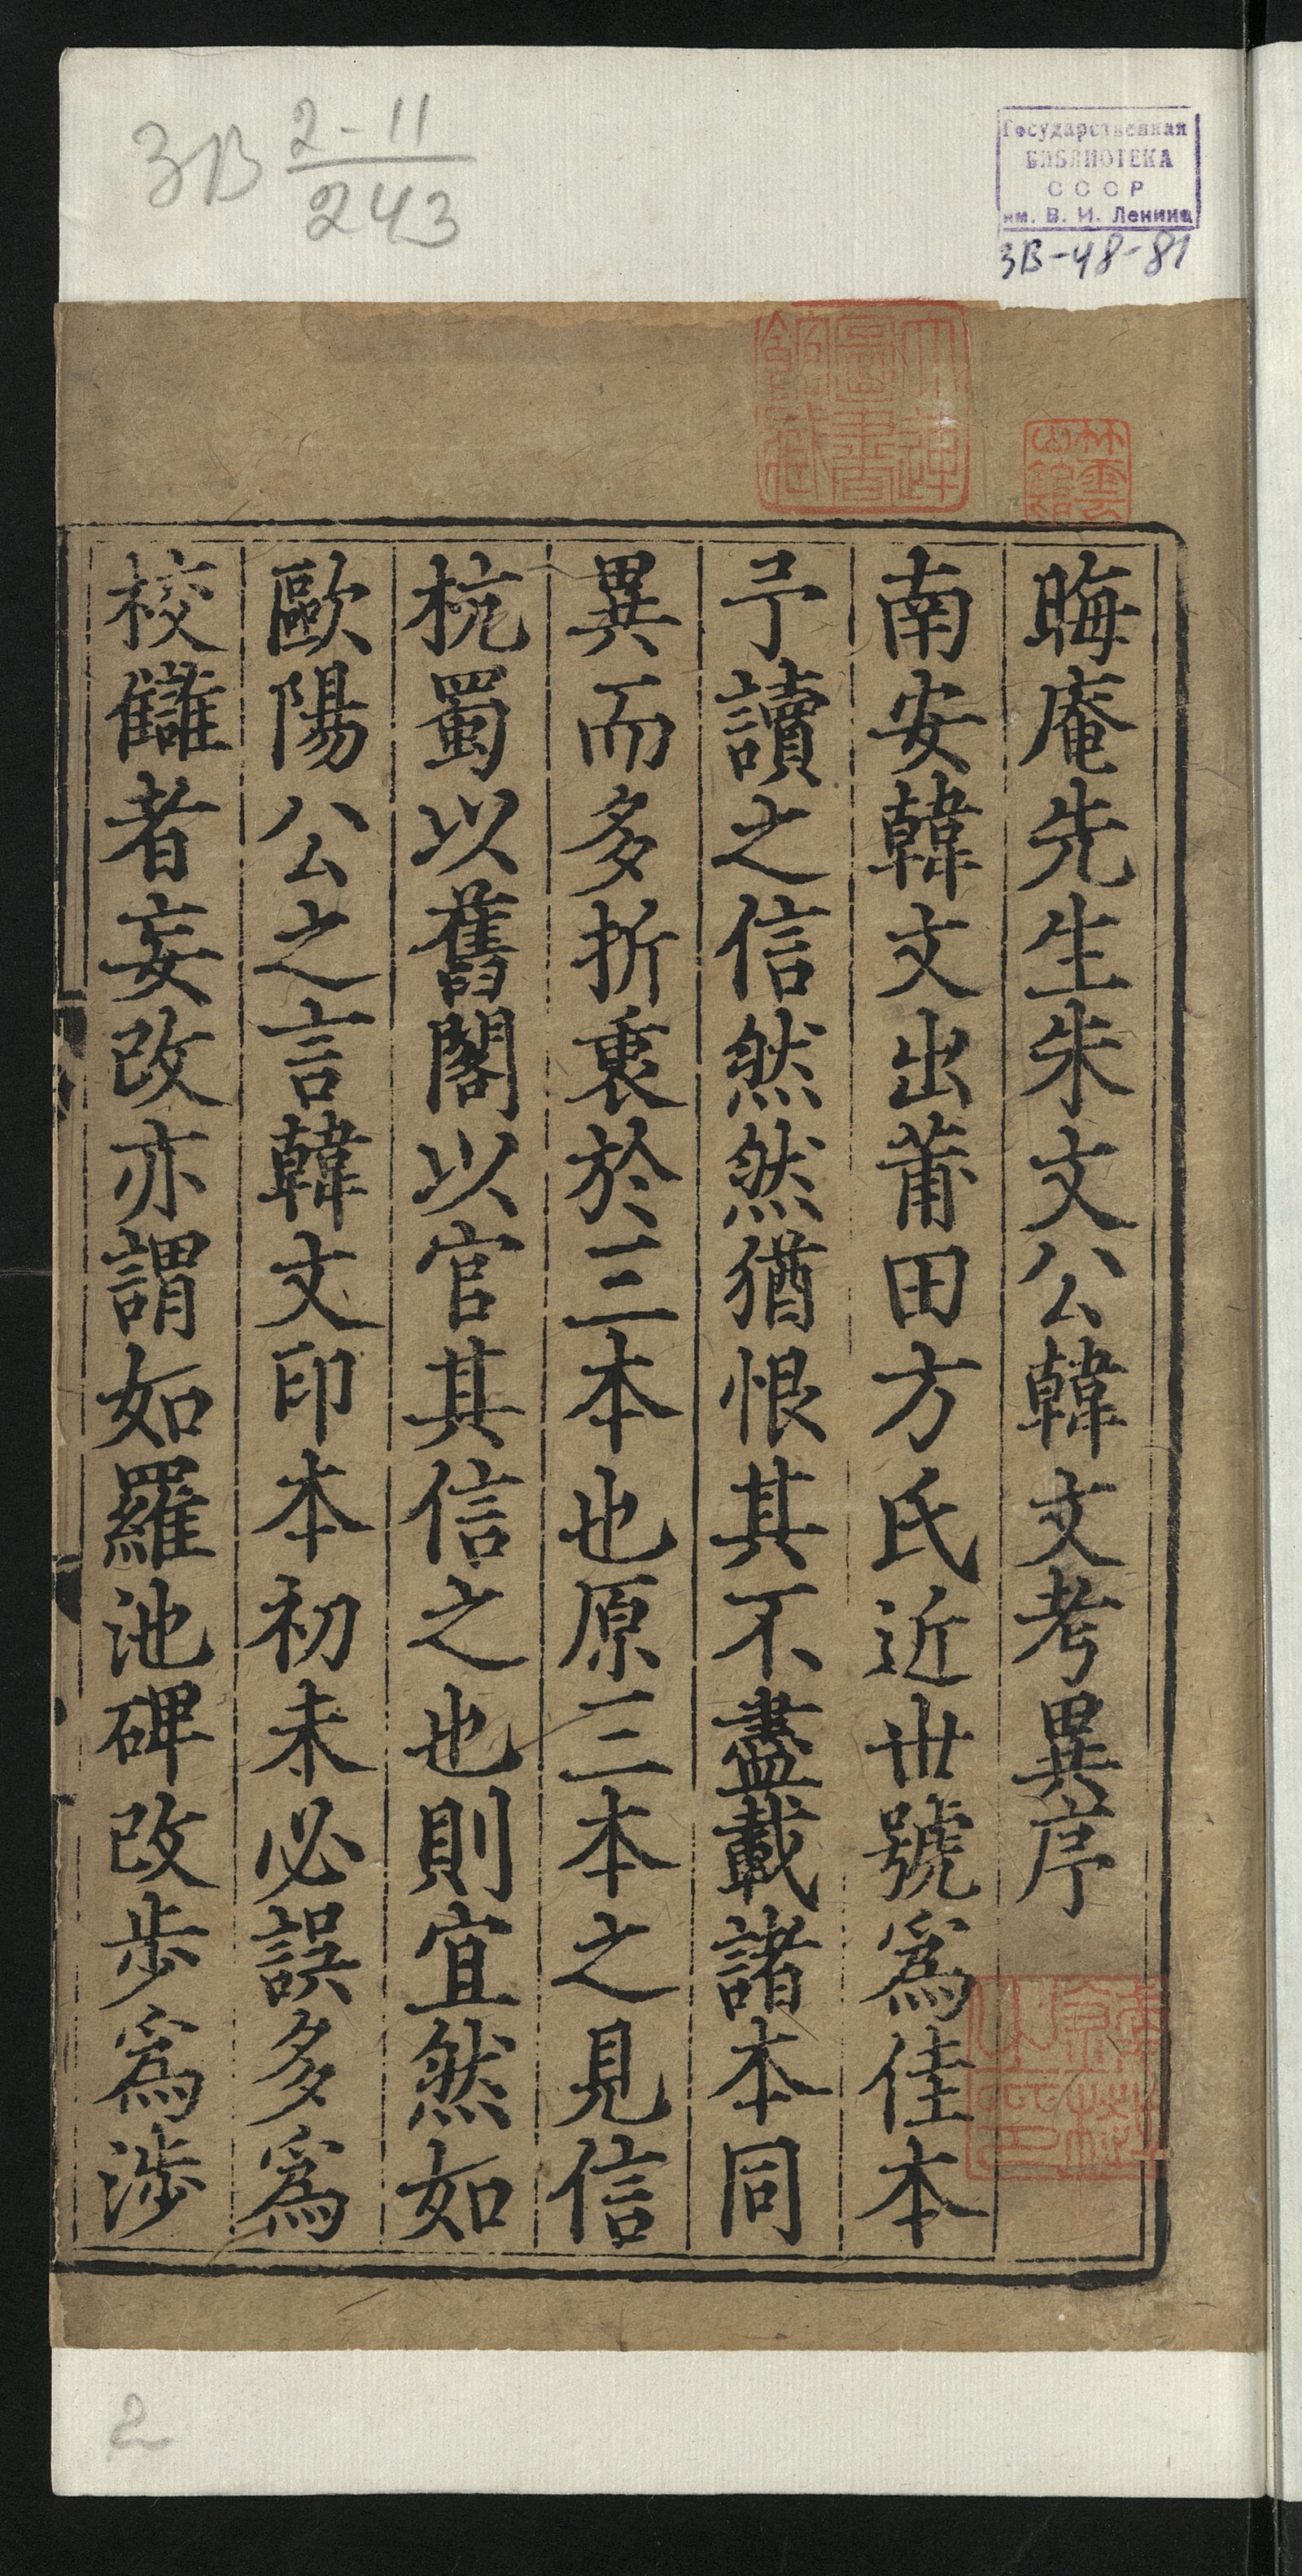 3В 2-11
243
Государственная
БИБЛИОТЕКА
СССР
им. В. И. Ленина
3В-48-81
大連
圖書
館藏
林雲
山館
晦庵先生朱文公韓文考異序
南安韓文出莆田方氏近世號爲佳本
予讀之信然然猶恨其不盡載諸本同
異而多折衷於三本也原三本之見信
杭蜀以舊閣以官其信之也則宜然如
歐陽公之言韓文印本初未必誤多爲
校讎者妄改亦謂如羅池碑改步爲涉
2